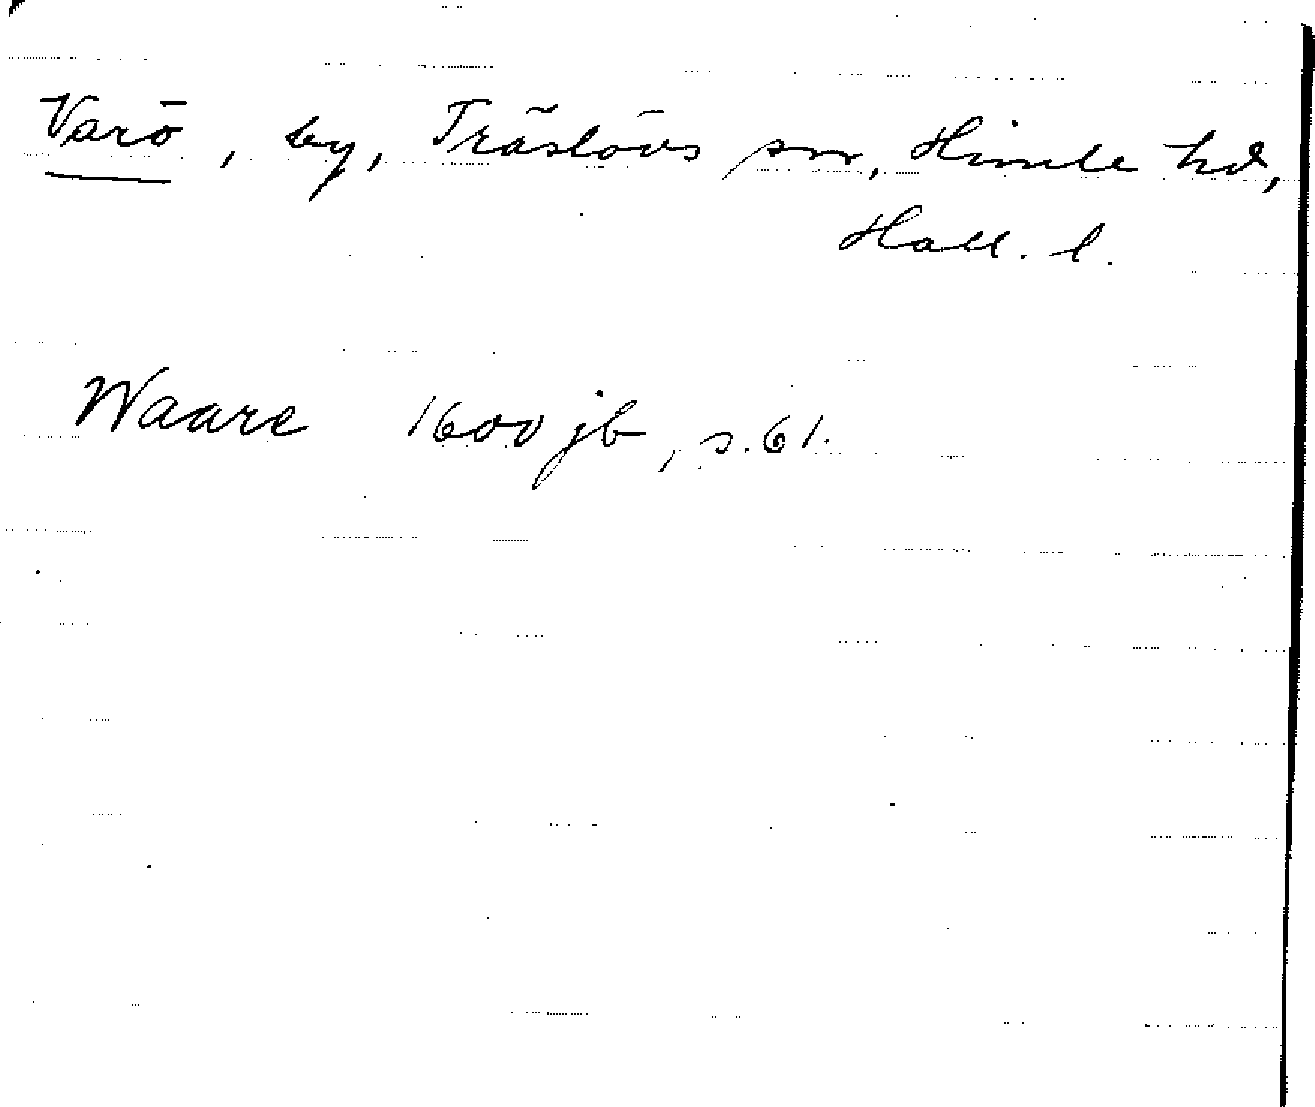 Varö, by, Träslövs sn, Himle hd,
Hall. l.
Waare 1600 jb, s. 61.